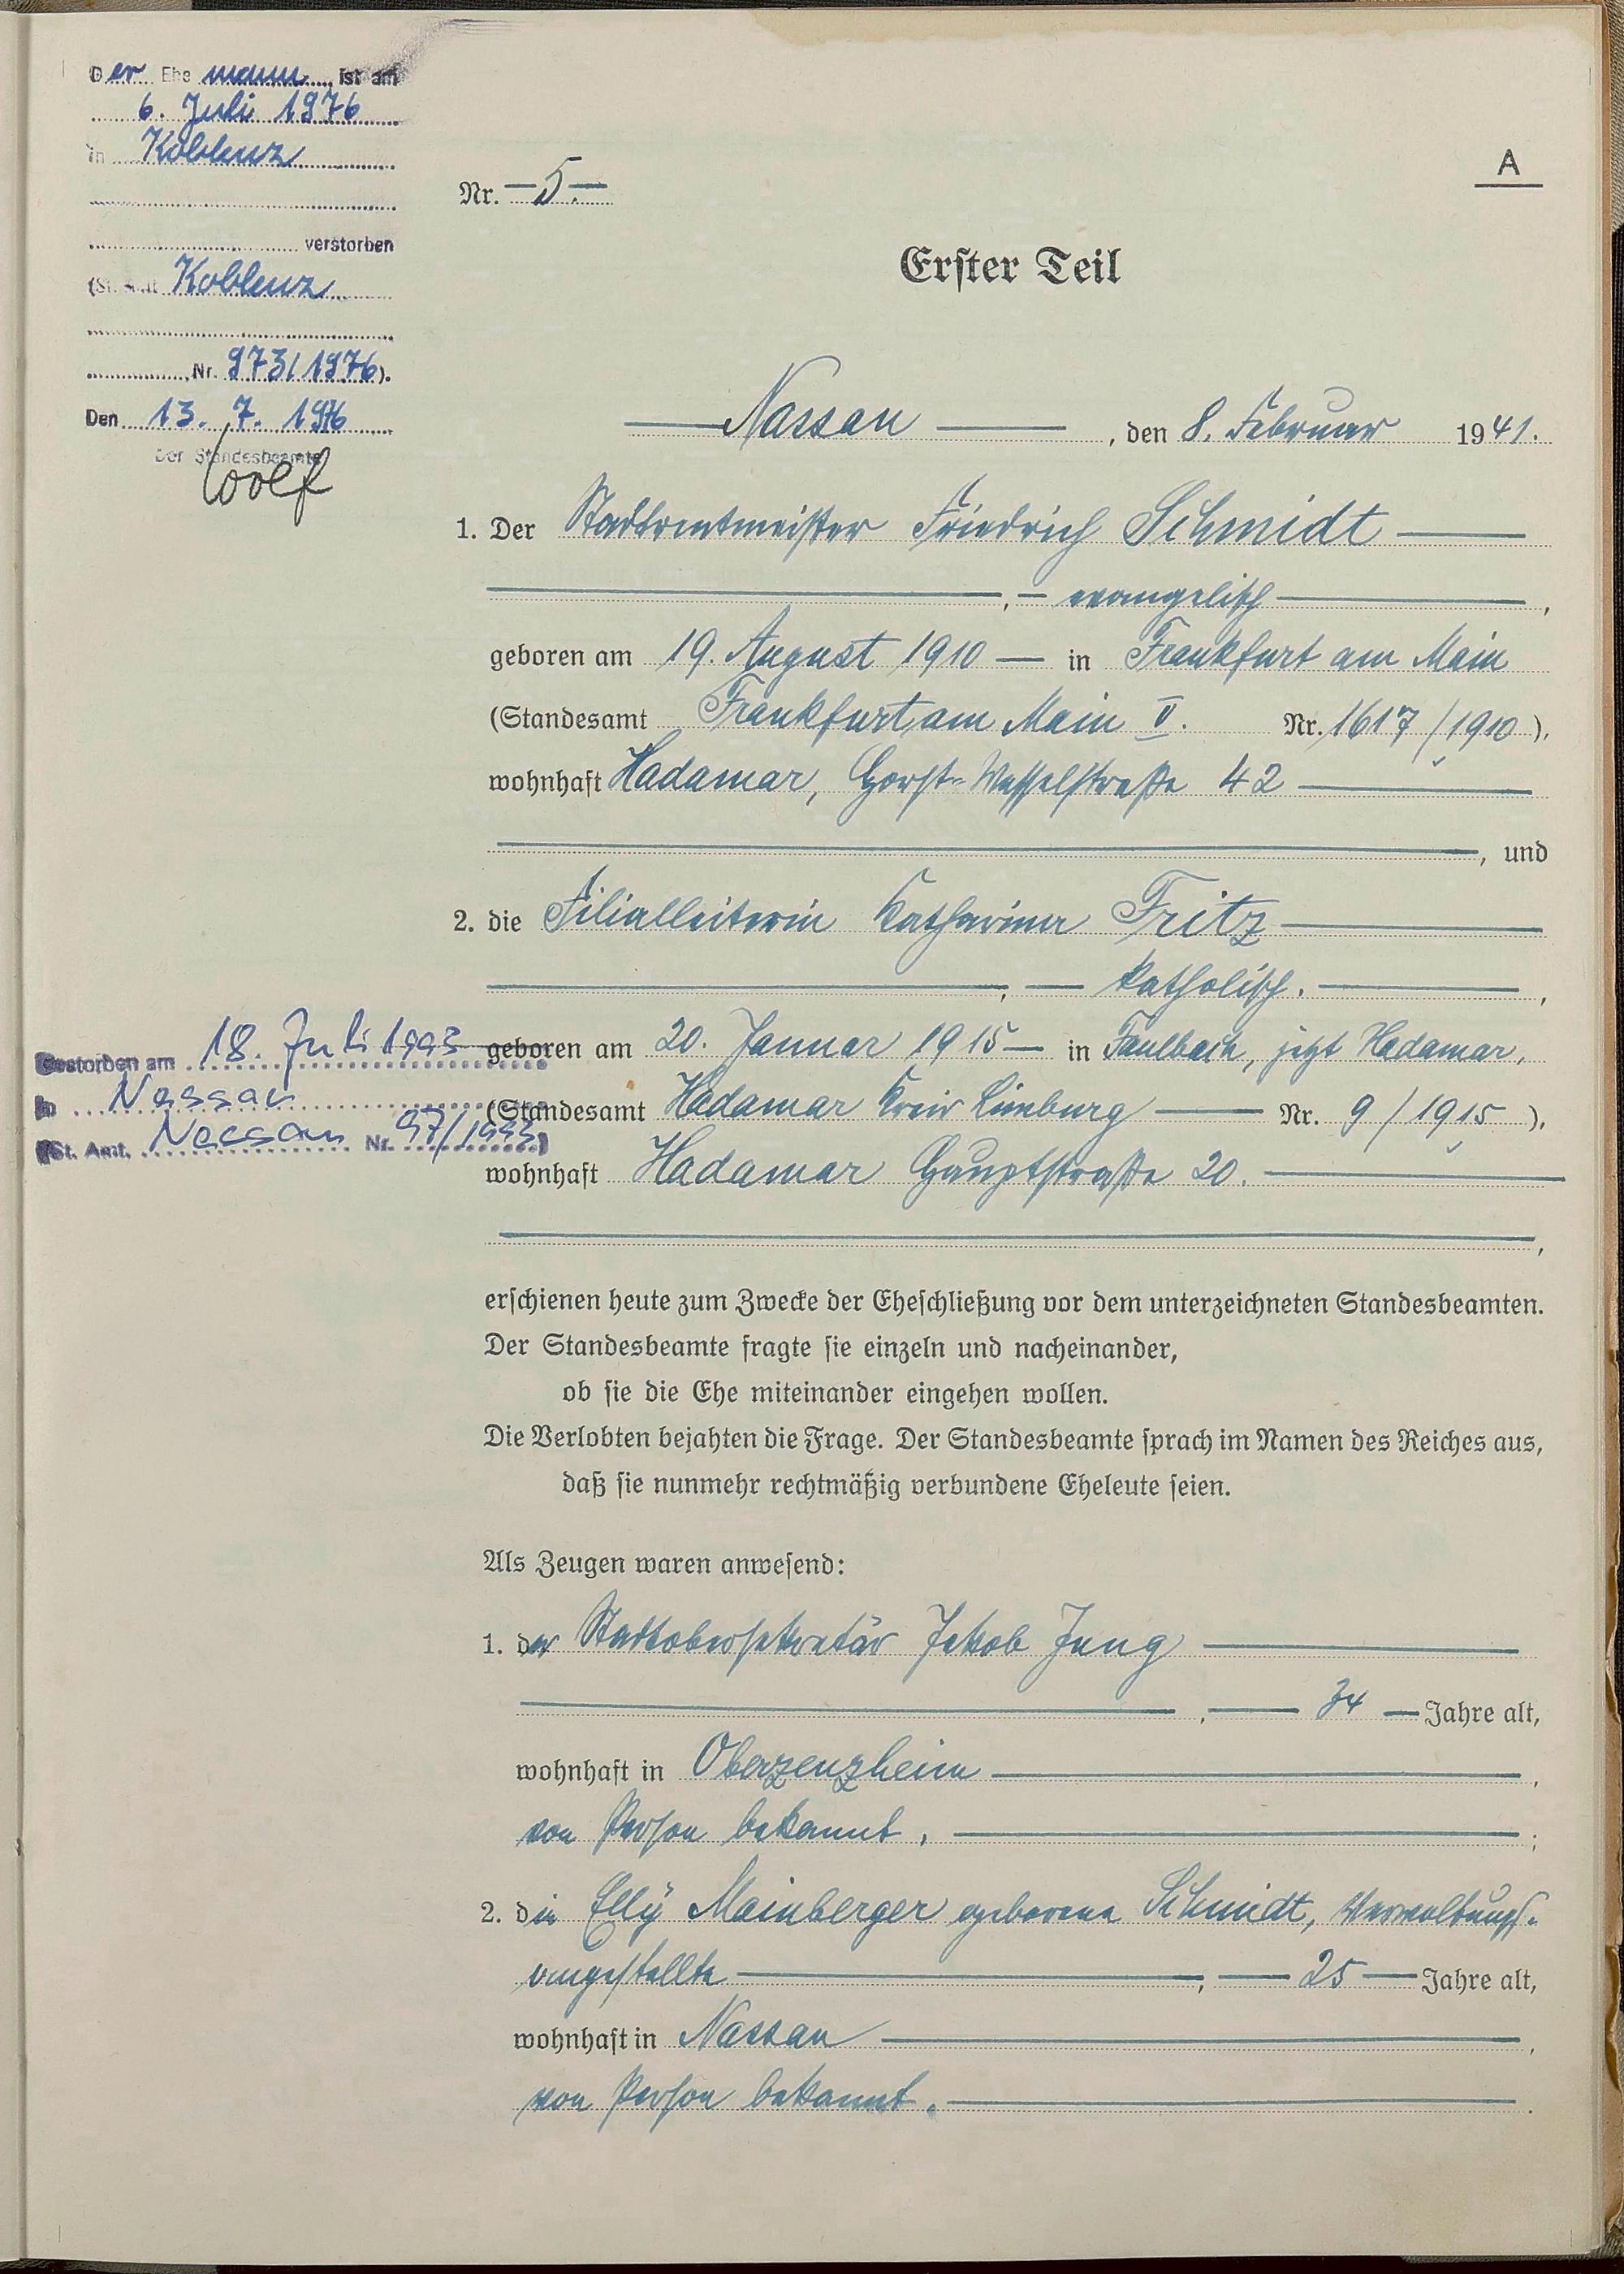 Der Ehemann ist am
6. Juli 1976
in Koblenz
verstorben
(St. Amt Koblenz
Nr. 973/1976).
Den 13. 7. 1976
Der Standesbeamte
Wolf
A
Nr. – 5 –
Erster Teil
Nassau, den 8. Februar 1941.
1. Der Stadtrentmeister Friedrich Schmidt
, – evangelisch ,
geboren am 19. August 1910 – in Frankfurt am Main
(Standesamt Frankfurt am Main V. Nr. 1617/1910),
wohnhaft Hadamar, Horst-Wesselstraße 42
, und
2. die Filialleiterin Katharina Fritz
, – katholisch. ,
geboren am 20. Januar 1915 – in Faulbach, jetzt Hadamar,
(Standesamt Hadamar Kreis Limburg – Nr. 9/1915),
wohnhaft Hadamar Hauptstraße 20.
,
Gestorben am 18. Juli 1993
in Nassau
(St. Amt. Nassau Nr. 97/1993)
erschienen heute zum Zwecke der Eheschließung vor dem unterzeichneten Standesbeamten.
Der Standesbeamte fragte sie einzeln und nacheinander,
ob sie die Ehe miteinander eingehen wollen.
Die Verlobten bejahten die Frage. Der Standesbeamte sprach im Namen des Reiches aus,
daß sie nunmehr rechtmäßig verbundene Eheleute seien.
Als Zeugen waren anwesend:
1. der Stadtobersekretär Jakob Jung
, – 34 – Jahre alt,
wohnhaft in Oberzeuzheim ,
von Person bekannt. ;
2. die Elly Mainberger geborene Schmidt, Verwaltungs-
angestellte , – 25 – Jahre alt,
wohnhaft in Nassau ,
von Person bekannt. .